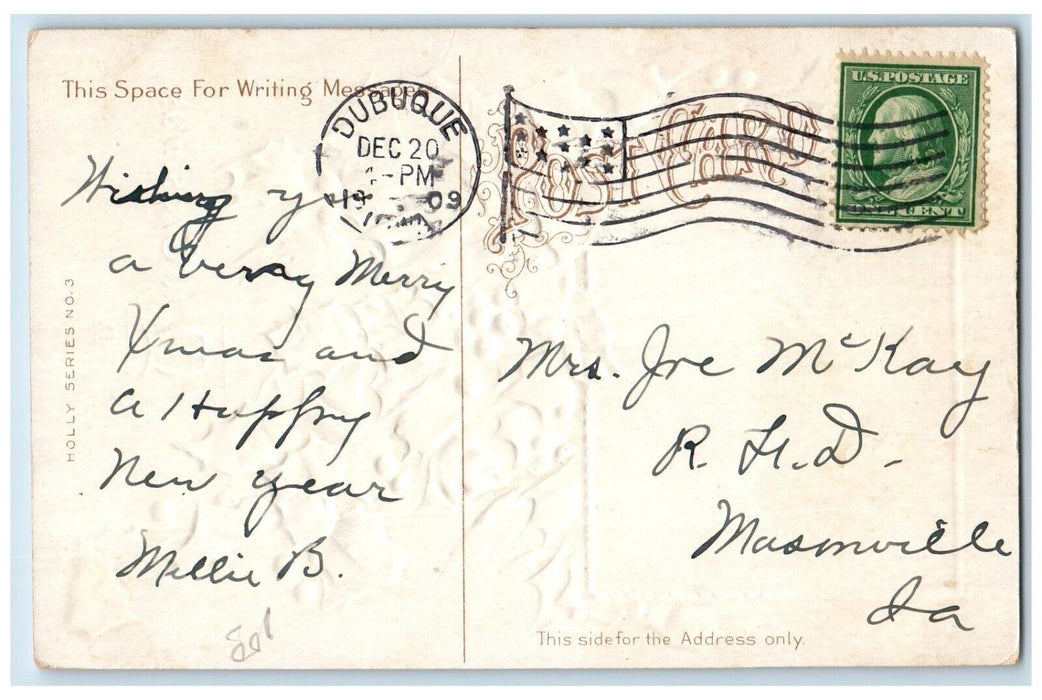 This Space For Writing Messages
DUBUQUE
DEC 20
-PM
19 09
IOWA
POST CARD
U.S. POSTAGE
ONE CENT
Wishing you
a very Merry
Xmas and
a Happy
New year
Millie B.
HOLLY SERIES NO. 3
Mrs. Joe McKay
R. F. D.
Masonville
Ia
This side for the Address only.